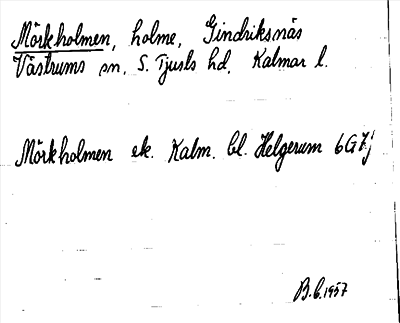 Mörkholmen, holme, Gindriksnäs
Västrums sn, S. Tjusts hd, Kalmar l.
Mörkholmen ek. Kalm. bl. Helgerum 6G7j
B.C. 1957